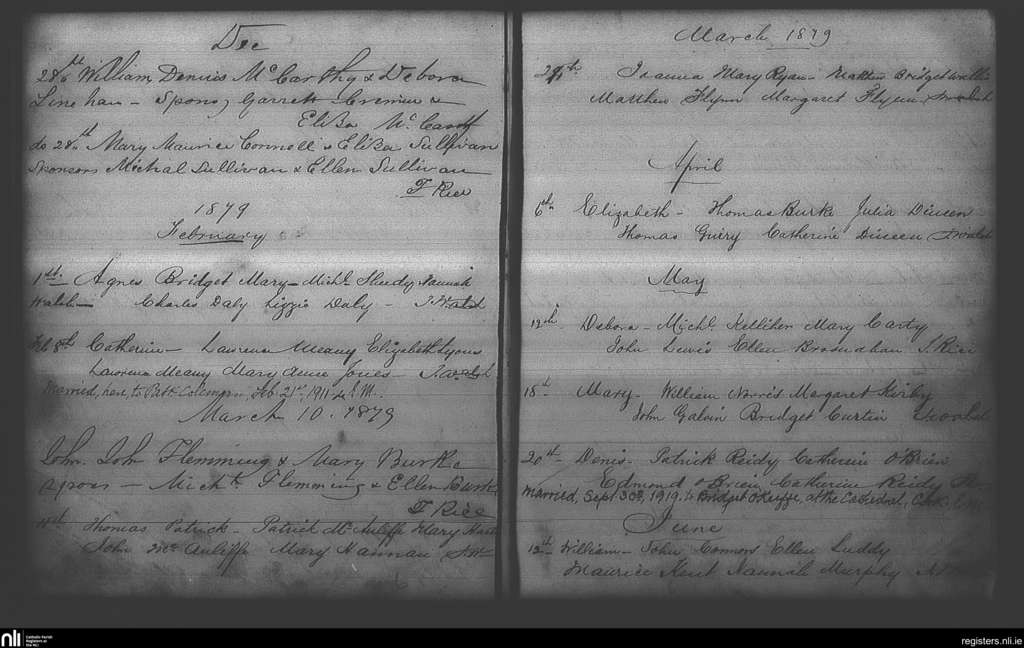 Dec
28th William Dennis McCarthy & Debora
Linehan - Spons, Garrett Cremin &
Eliza McCarthy
do 28th Mary Maurice Connell & Eliza Sullivan
Sponsors Michal Sullivan & Ellen Sullivan
F Rice
1879
February
1st. Agnes Bridget Mary - Michl Sheedy Hannah
Walsh - Charles Daly Lizzie Daly - J Walsh
Feb 8th Catherine - Laurence Meany Elizabeth Lyons
Laurence Meany Mary Anne Jones - J. Walsh
Married, here, to Patk Coleman, Feb. 21st, 1911
March 10. 1879
John. John Flemming & Mary Burke
Spons - Micht Flemming & Ellen Burke
F Rice
Thomas Patrick. Patrick McAuliffe Mary
John McAuliffe Mary Hannan J.W.
March 1879
Joanna Mary Ryan - Matthew Bridget
Matthew Flynn Margaret Flynn J Walsh
April
6th Elizabeth - Thomas Burke Julia Dineen
Thomas Guiry Catherine Dineen J Walsh
May
12th Debora - Michl Kelliher Mary Carty
John Lewis Ellen Brosnahan F. Rice
18th Mary - William Norris Margaret Kirby
John Galvin Bridget Curtin J Walsh
20th Denis - Patrick Reidy Catherine O'Brien
Edmond O'Brien Catherine Reidy
Married, Sept 30th, 1919, to Bridget O'Keeffe, at the Cathedral, Cork.
June
12th William - John Connors Ellen Luddy
Maurice Kent Hannah Murphy
nli
Catholic Parish
Registers at
the NLI
registers.nli.ie